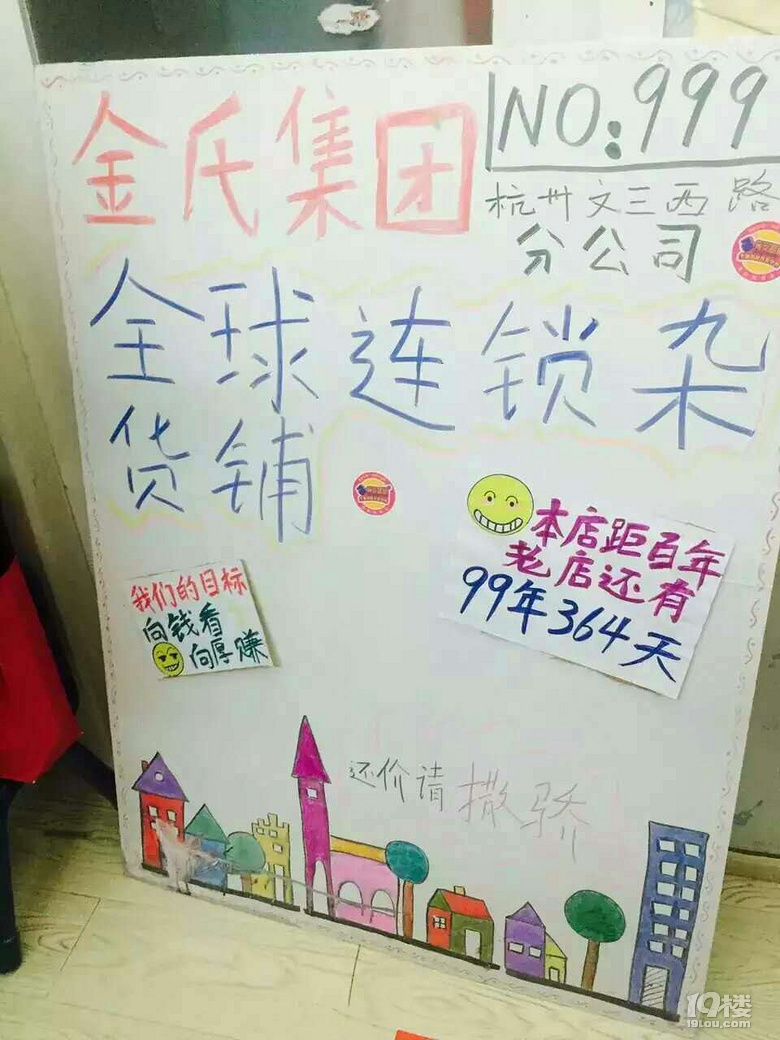 金氏集团
NO:999
杭州文三西路
分公司
全球连锁杂
货铺
本店距百年
老店还有
99年364天
我们的目标
向钱看
向厚赚
还价请撒骄
19楼
19lou.com